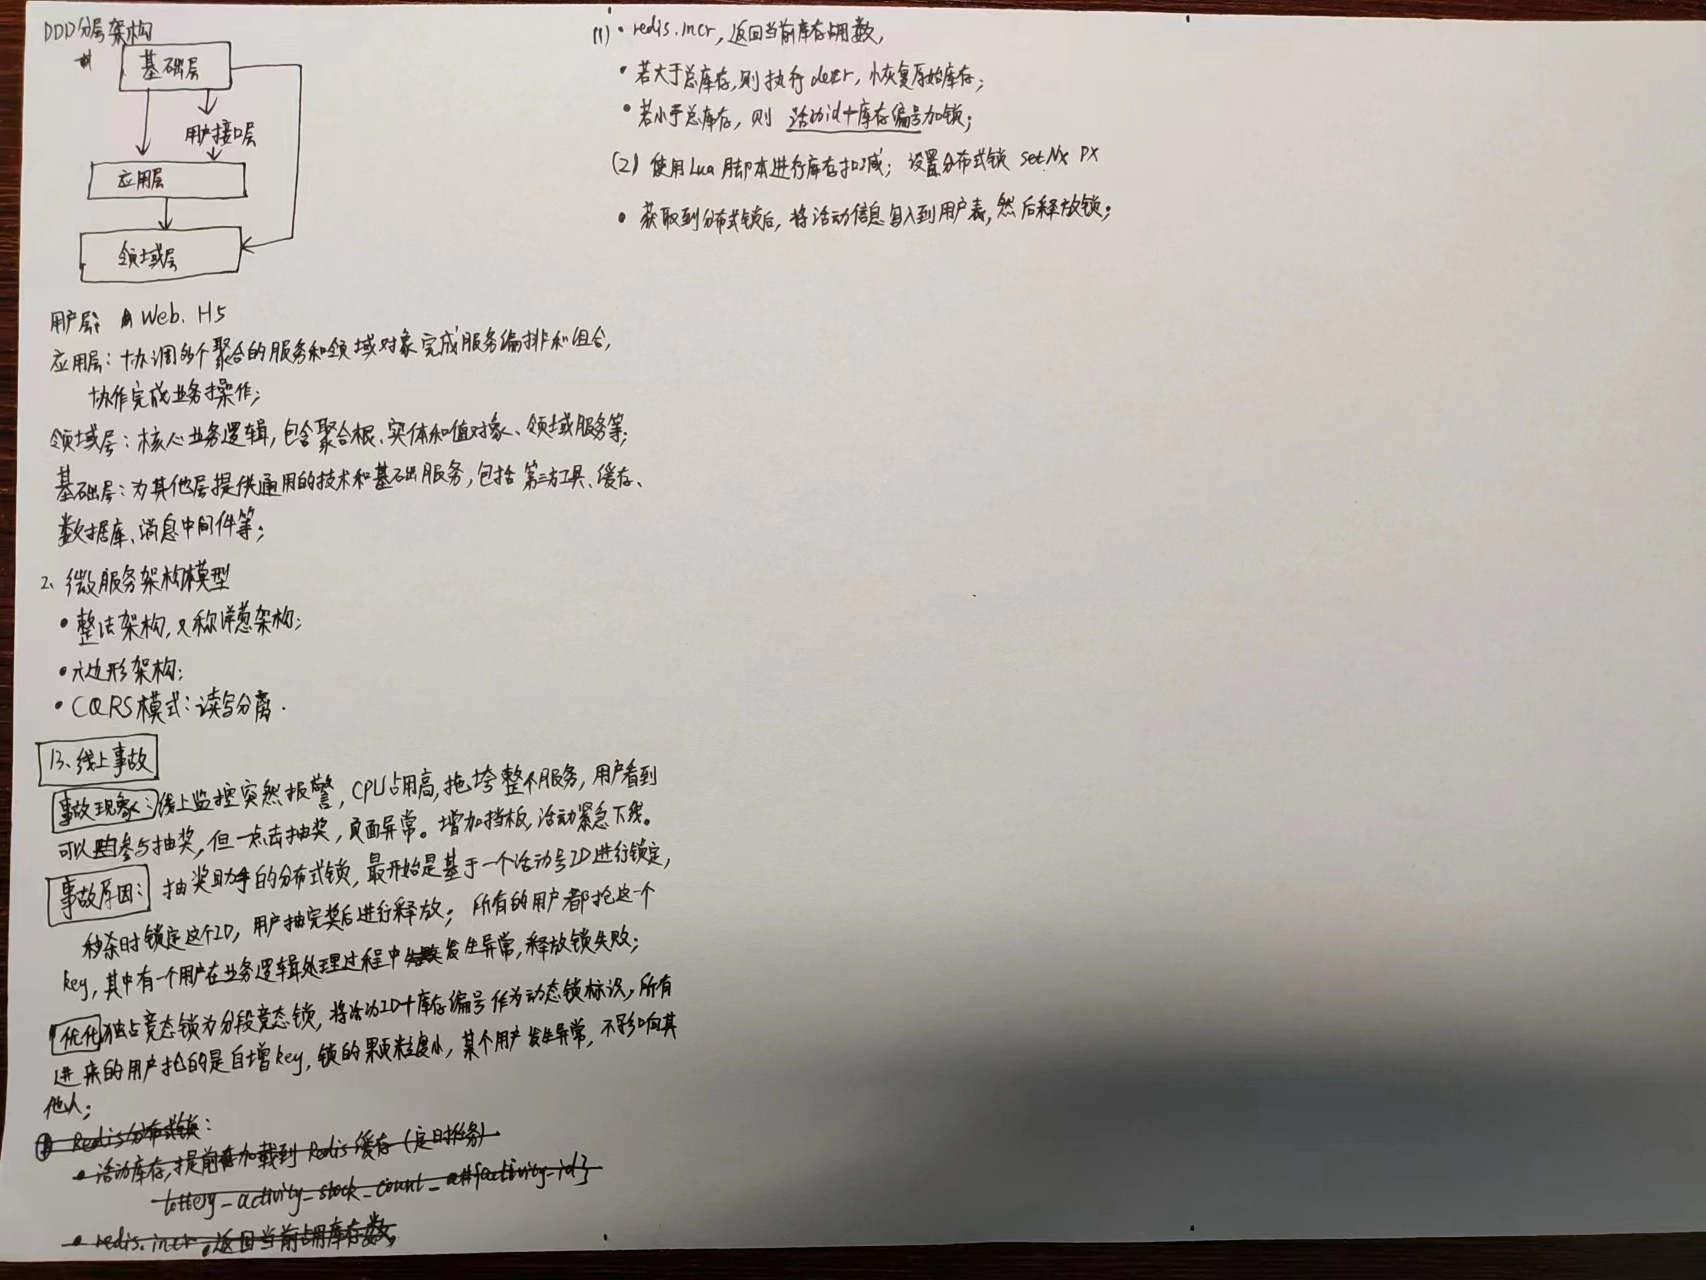 DDD分层架构
基础层
用户接口层
应用层
领域层
用户层: Web. H5
应用层:协调多个聚合的服务和领域对象完成服务编排和组合,
协作完成业务操作;
领域层:核心业务逻辑,包含聚合根、实体和值对象、领域服务等;
基础层:为其他层提供通用的技术和基础服务,包括第三方工具、缓存、
数据库、消息中间件等;
2、微服务架构模型
• 整洁架构,又称洋葱架构;
• 六边形架构;
• CQRS模式:读写分离.
13、线上事故
事故现象:线上监控突然报警,CPU占用高,拖垮整个服务,用户看到
可以参与抽奖,但一点击抽奖,页面异常。增加挡板,活动紧急下线。
事故原因:抽奖助手的分布式锁,最开始是基于一个活动号ID进行锁定,
秒杀时锁定这个ID,用户抽完奖后进行释放;所有的用户都抢这个
key,其中有一个用户在业务逻辑处理过程中发生异常,释放锁失败;
优化独占竞态锁为分段竞态锁,将活动ID+库存编号作为动态锁标识,所有
进来的用户抢的是自增key,锁的颗粒度小,某个用户发生异常,不影响其
他人;
Redis分布式锁:
• 活动库存,提前加载到Redis缓存(定时任务)
lottery_activity_stock_count_activity_id}
• redis.incr,返回当前占用库存数,
(1) • redis.incr,返回当前库存占用数,
• 若大于总库存,则执行decr,恢复原始库存;
• 若小于总库存,则 活动id+库存编号加锁;
(2) 使用Lua脚本进行库存扣减;设置分布式锁 setNx PX
• 获取到分布式锁后,将活动信息写入到用户表,然后释放锁;